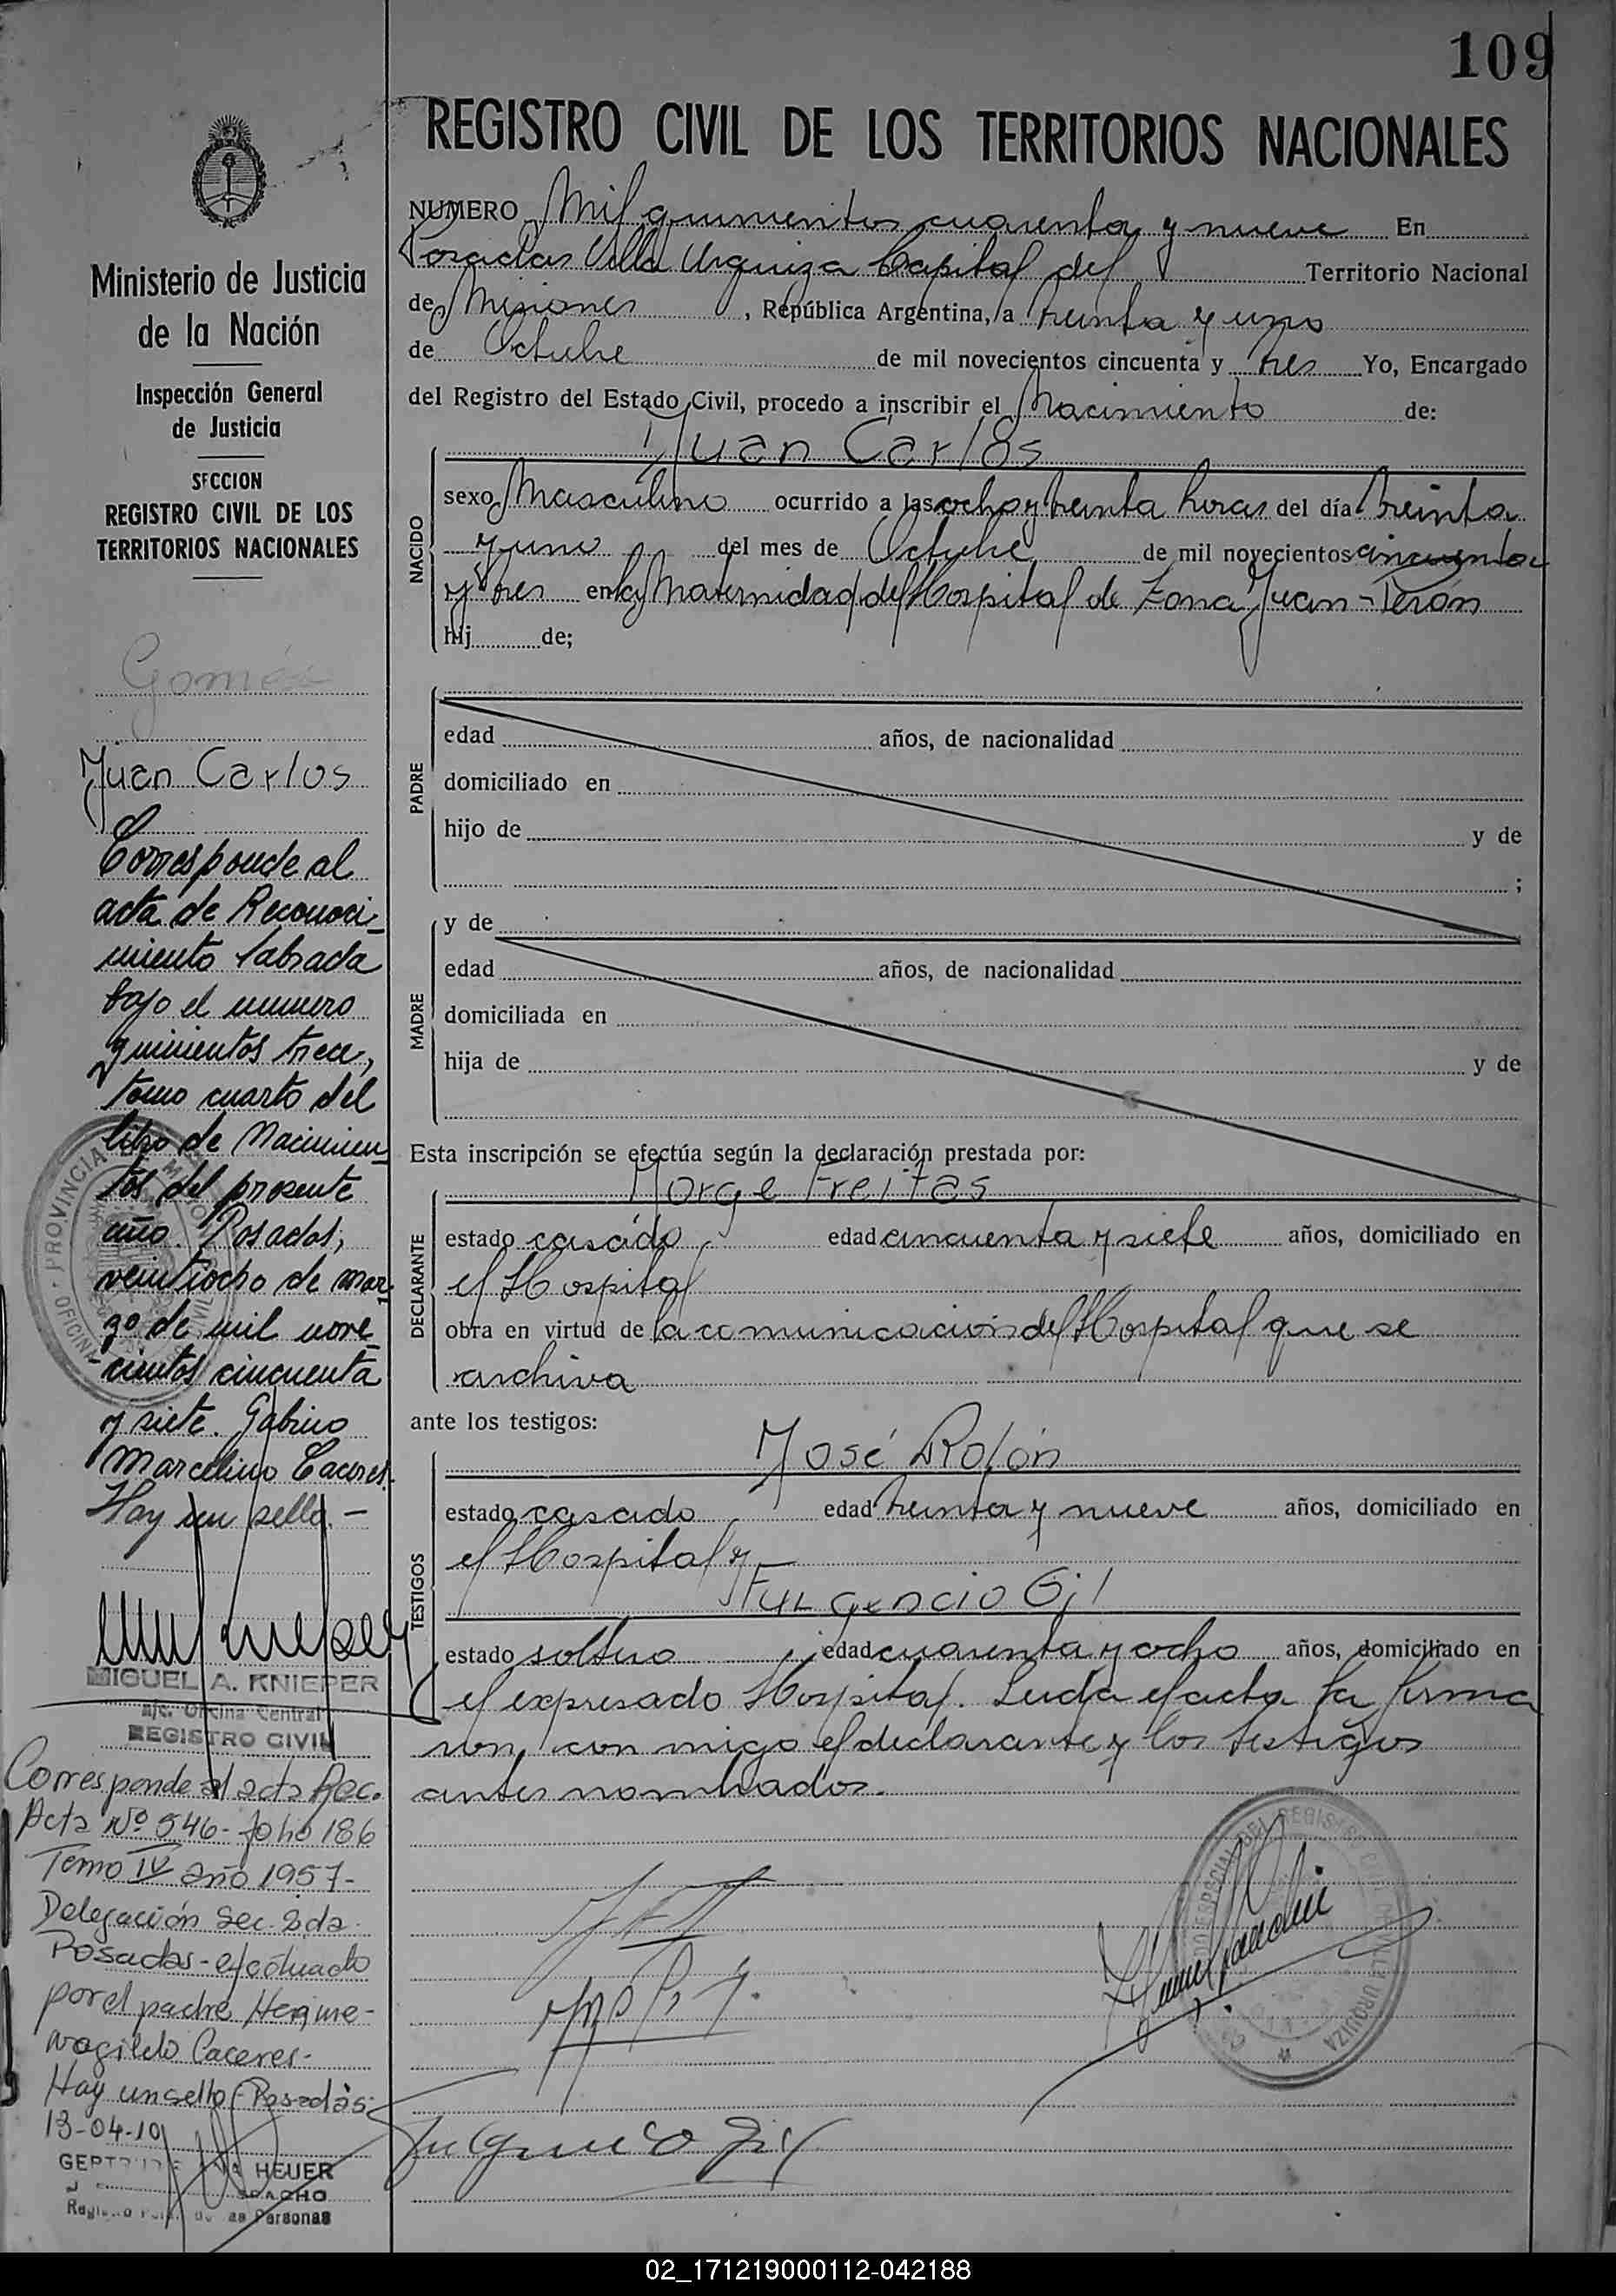 109
REGISTRO CIVIL DE LOS TERRITORIOS NACIONALES
NUMERO Mil quinientos cuarenta y nueve En
Posadas Villa Urquiza Capital del Territorio Nacional
de Misiones, República Argentina, a treinta y uno
de Octubre de mil novecientos cincuenta y tres Yo, Encargado
del Registro del Estado Civil, procedo a inscribir el Nacimiento de:
NACIDO
Juan Carlos
sexo Masculino ocurrido a las ocho y treinta horas del día treinta
y uno del mes de Octubre de mil novecientos cincuenta
y tres en la Maternidad del Hospital de Zona Juan-Perón
hij de;
PADRE
edad años, de nacionalidad
domiciliado en
hijo de y de
;
MADRE
y de
edad años, de nacionalidad
domiciliada en
hija de y de
Esta inscripción se efectúa según la declaración prestada por:
DECLARANTE
Jorge Freitas
estado casado edad cincuenta y siete años, domiciliado en
el Hospital
obra en virtud de la comunicacion del Hospital que se
archiva
ante los testigos:
TESTIGOS
José Rolón
estado casado edad treinta y nueve años, domiciliado en
el Hospital y
Fulgencio Gil
estado soltero edad cuarenta y ocho años, domiciliado en
el expresado Hospital. Leida el acta la firma
ron con migo el declarante y los testigos
antes nombrados.
Ministerio de Justicia
de la Nación
Inspección General
de Justicia
SECCION
REGISTRO CIVIL DE LOS
TERRITORIOS NACIONALES
Gomés
Juan Carlos
Corresponde al
acta de Reconoci-
miento labrada
bajo el numero
quinientos trece,
tomo cuarto del
libro de Nacimien-
tos del presente
año. Posadas,
veintiocho de mar-
zo de mil nove-
cientos cincuenta
y siete. Gabino
Marcelino Caceres.
Hay un sello.-
MIGUEL A. KNIEPER
a/c. Oficina Central
REGISTRO CIVIL
Corresponde al acta Rec.
Acta Nº 546- folio 186
Tomo IV año 1957-
Delegación Sec. 2da.
Posadas- efectuado
por el padre Herme-
negildo Caceres-
Hay un sello- Posadas
13-04-10
HEUER
Personas
PROVINCIA DE MISIONES
URQUIZA
02_171219000112-042188